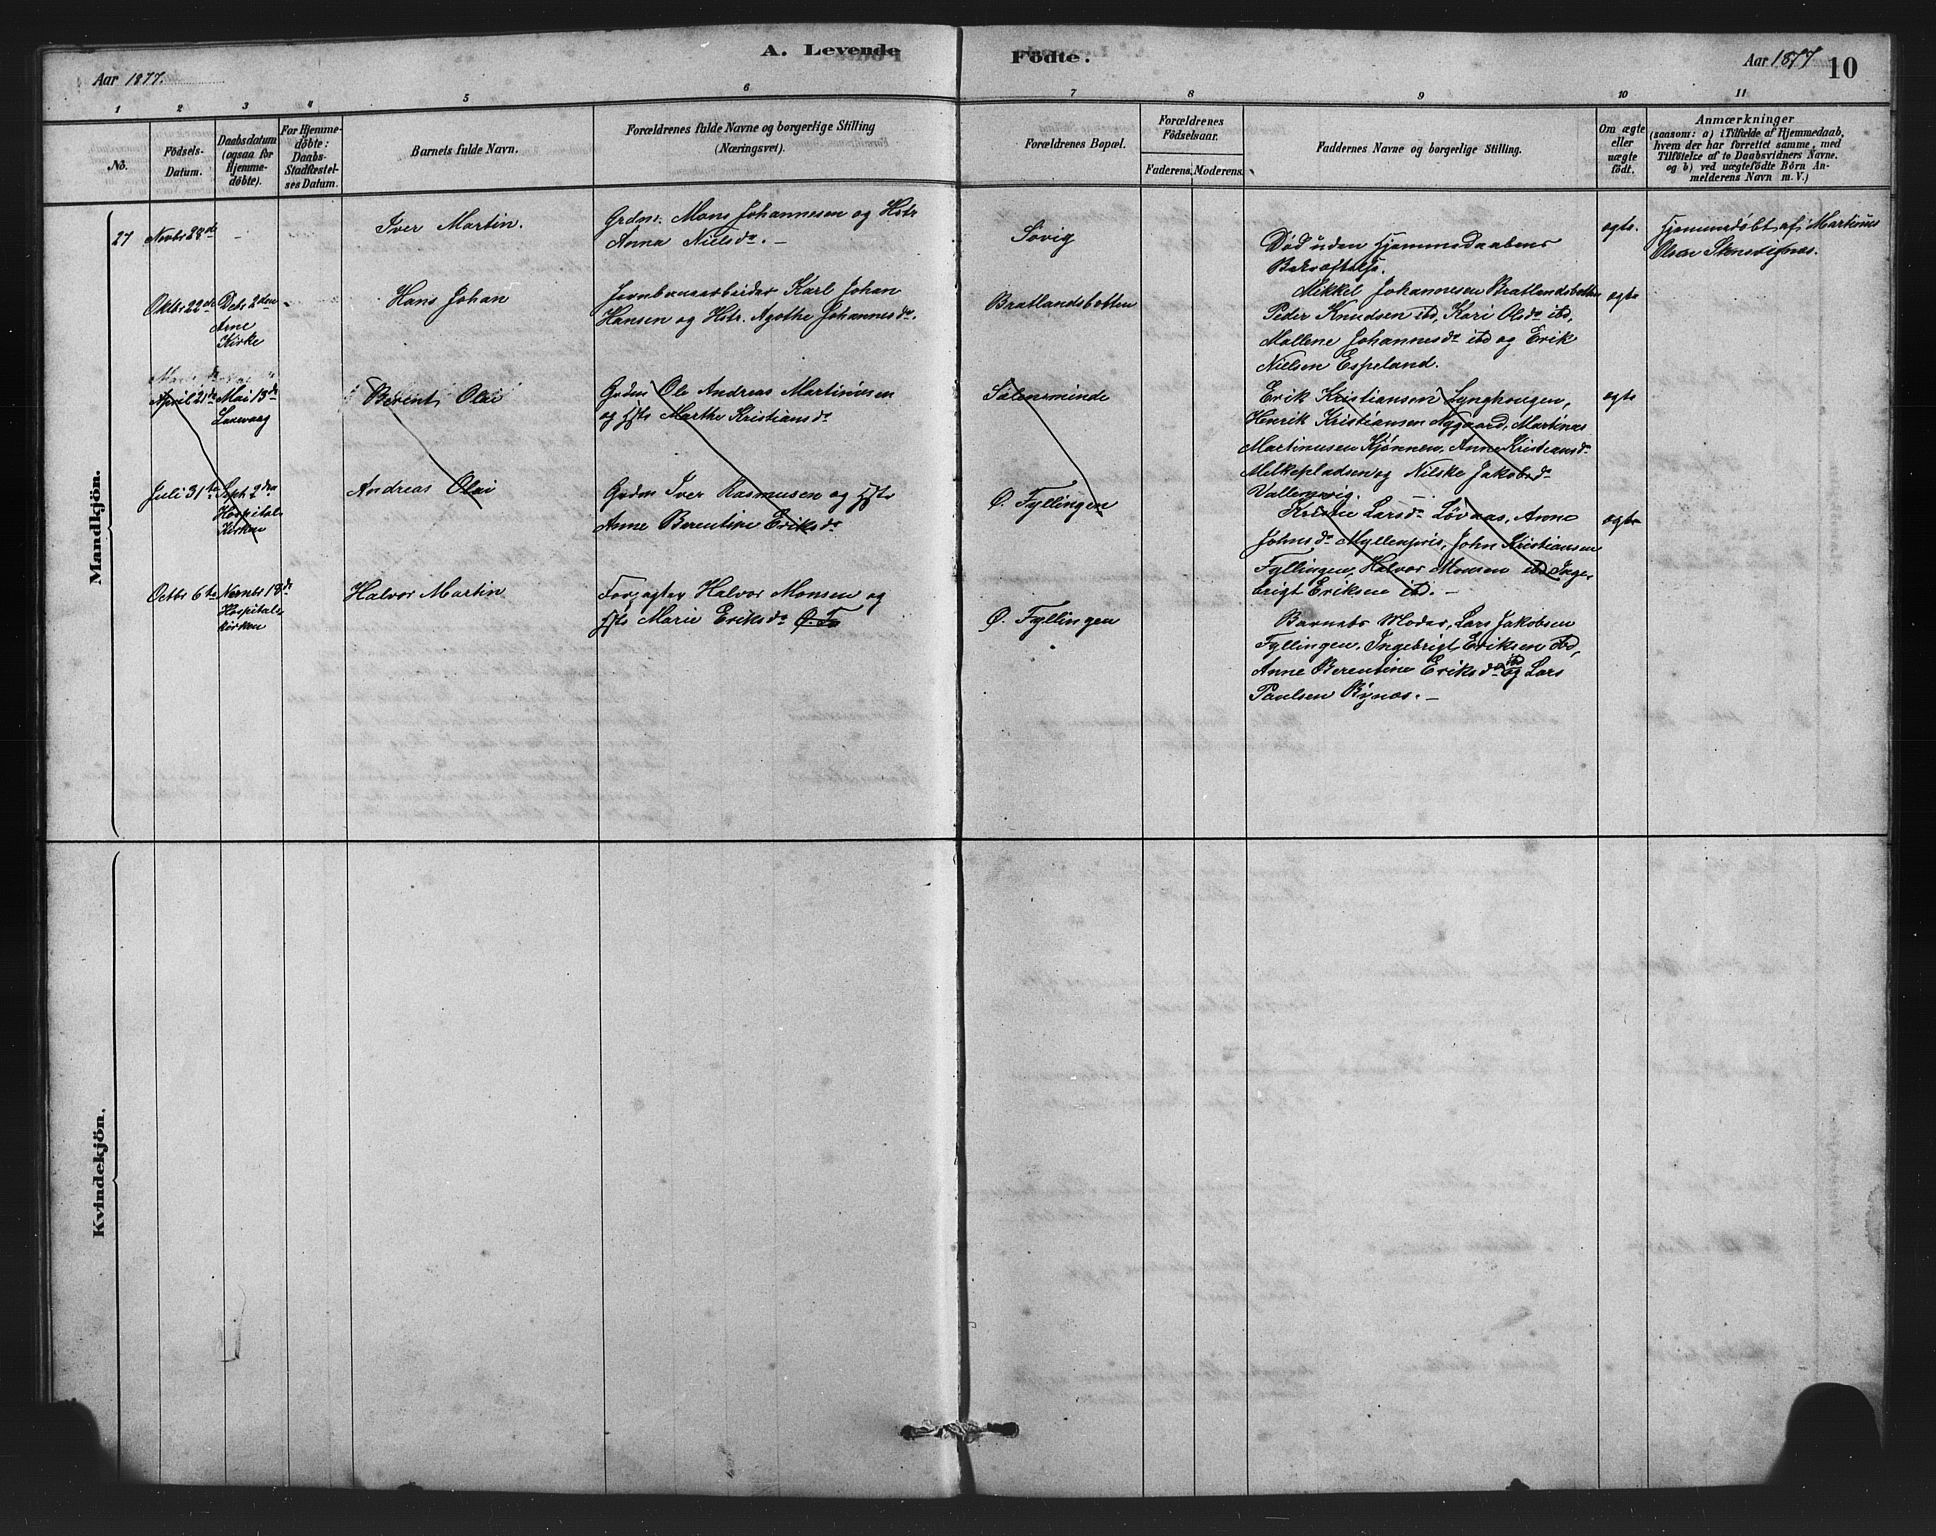 A. Levende
Födte.
Aar 1877.
Aar 1877
10
1 2 3 4 5 6 7 8 9 10 11
No.
Födsels-
Datum.
Daabsdatum
(ogsaa for
Hjemme-
döbte).
For Hjemme-
döbte:
Daabs-
Stadfæstel-
ses Datum.
Barnets fulde Navn.
Forældrenes fulde Navne og borgerlige Stilling
(Næringsvei).
Forældrenes Bopæl.
Forældrenes
Födselsaar.
Faderens.
Moderens.
Faddernes Navne og borgerlige Stilling.
Om ægte
eller
uægte
födt.
Anmærkninger
(saasom: a) i Tilfælde af Hjemmedaab,
hvem der har forrettet samme, med
Tilföielse af to Daabsvidners Navne.
og b) ved uægtefödte Börn An-
melderens Navn m. V.)
Mandkjön.
27
Novbr 28de
-
Iver Martin.
Grdm. Mons Johannesen og Hstr
Anna Nielsdr. -
Søvig
Død uden Hjemmedaabens
Bekræftelse.
ægte.
Hjemmedøbt af Martinus
Olsen Stensvignæs.
Oktbr 22de
Debr 2den
Arne
Kirke
-
Hans Johan
Jernbanearbeider Karl Johan
Hansen og Hstr. Agathe Johannesdr.
Bratlandsbotten
Mikkel Johannesen Bratlandsbotten
Peder Knudsen ibd, Kari Olsdr ibd,
Mallene Johannesdr ibd og Erik
Nielsen Espeland.
ægte
April 21de
Mai 13de
Laxevaag
Berent Olai
Grdm Ole Andreas Martinusen
og Hstr Marthe Kristiansdr
Salensminde
Erik Kristiansen Lynghougen,
Henrik Kristiansen Nygaard, Martinus
Martinusen Kjønnen, Anne Kristiansdr
Melkepladsen og Nilske Jakobsdr
Vallenrvig. -
ægte
Juli 31te
Sept 2den
Hospitals
Kirken
Andreas Olai
Grdm Iver Rasmusen og Hstr
Anne Berentine Eriksdr
Ø. Fyllingen
Kristie Larsdr Løvaas, Anne
Johnsdr Myllenpris, John Kristiansen
Fyllingen, Halvor Monsen ibd, Inge-
brigt Eriksen ibd. -
ægte
Octbr 6te
Novbr 18de
Hospitals
kirken
Halvor Martin
Forpagter Halvor Monsen og
Hstr Marie Eriksdr Ø. Fy
Ø. Fyllingen
Barnets Moder, Lars Jakobsen
Fyllingen, Ingebrigt Eriksen ibd,
Anne Berentine Eriksdr ibd og Lars
Paulsen Bjnæs. -
Kvindekjön.